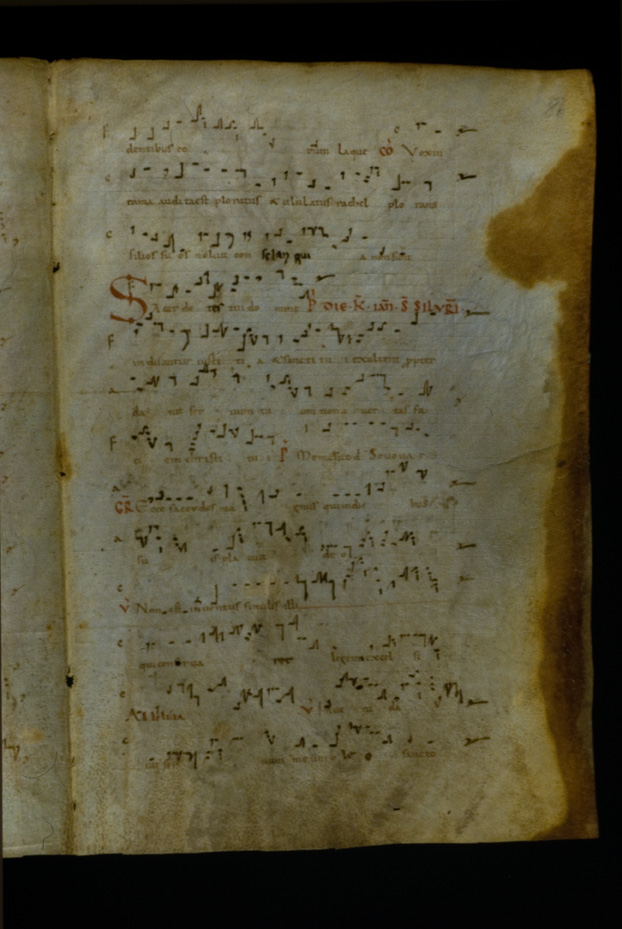 dentibus eo rum laque CŌ Vox in
rama audita est ploratus & ululatus rachel plo rans
filios su os noluit con solari qui a non sunt
Sacerdo tes tui do mine P̄ DIE K̄ IAN̄ S̄ SILVRI
induantur iusti ti a & sancti tu i exultent ppter
da uid ser uum tu um non a uer tas fa
ci em christi tu i P̄ Memento d
GR̄ Ecce sacerdos ma gnus qui in die bus
su is pla cuit de o
V̄ Non est inuentus similis illi
qui conserua ret legem excel si
Alleluia V̄ da
sancto